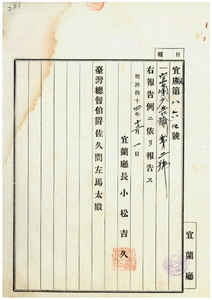 日
宜庶第八六九號
一宜蘭廳報第二號
右報告例ニ依リ報告ス
明治四十四年十一月一日
宜蘭廳長小松吉久
臺灣總督伯爵佐久間左馬太殿
宜蘭廳